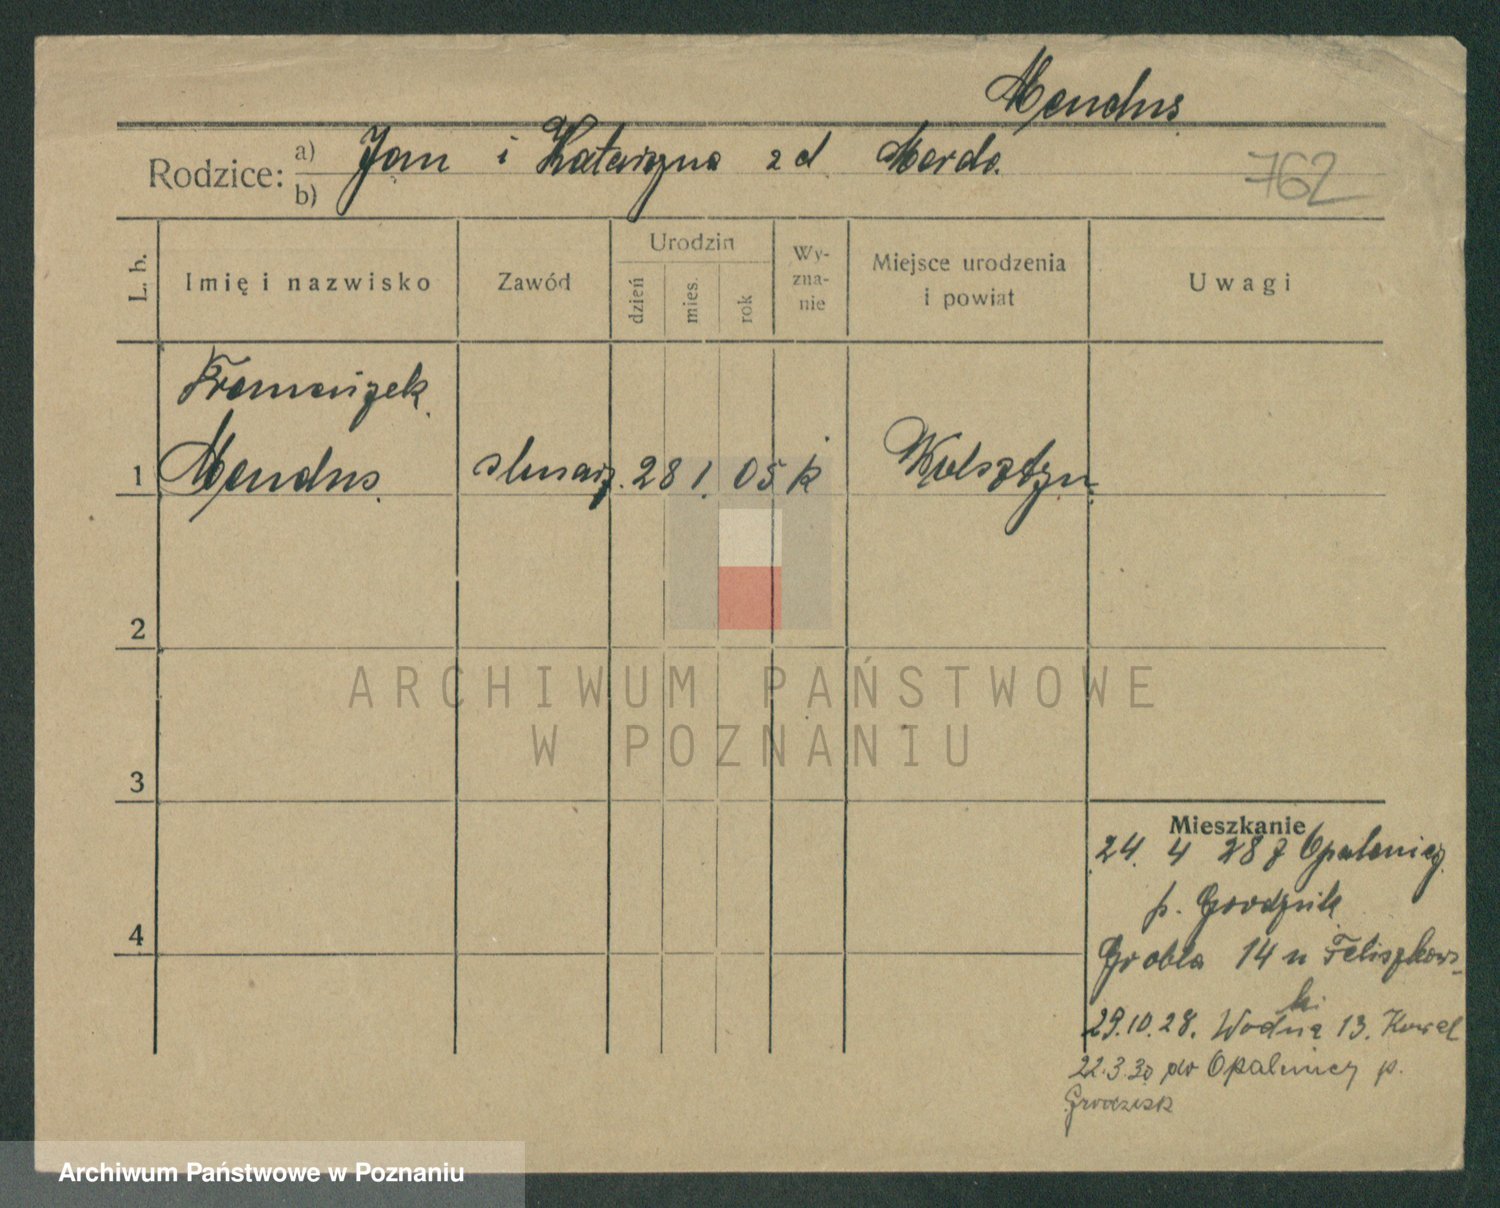 Mendus
Rodzice: a) Jan i Katarzyna z d Marda.
b)
762
L. b. Imię i nazwisko Zawód Urodzin dzień mies. rok Wyznanie Miejsce urodzenia i powiat Uwagi
Franciszek
1 Mendus ślusarz. 28 1. 05 k Wolsztyn
2
3
4
Mieszkanie
24. 4 28 z Opalenicy
p. Grodzisk
Grobla 14 u Feliszkows-
ki
29.10.28. Wodna 13. Kowal
22.3.30 do Opalenicy p.
Grodzisk
ARCHIWUM PAŃSTWOWE
W POZNANIU
Archiwum Państwowe w Poznaniu